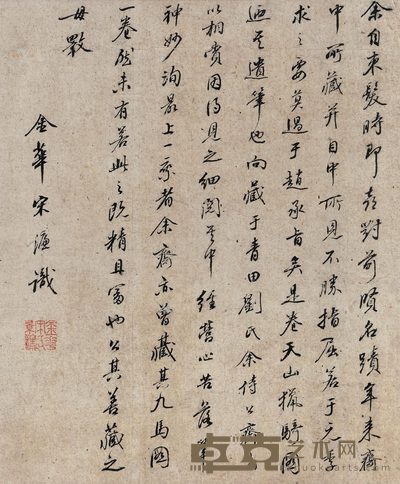 余自束髮時即喜對前賢名蹟年来齋
中所藏并目中所見不勝指屈若于元季
求之要莫過于趙承旨矣是卷天山獵騎圖
迺其遺筆也向藏于青田劉氏余侍公齋
以相賞因得見之細閱其中經營心苦落筆
神妙洵最上一乘者余齋亦曾藏其九馬圖
一卷然未有若此之既精且富也公其善藏之
毋斁
金華宋濂識
卓克艺术网